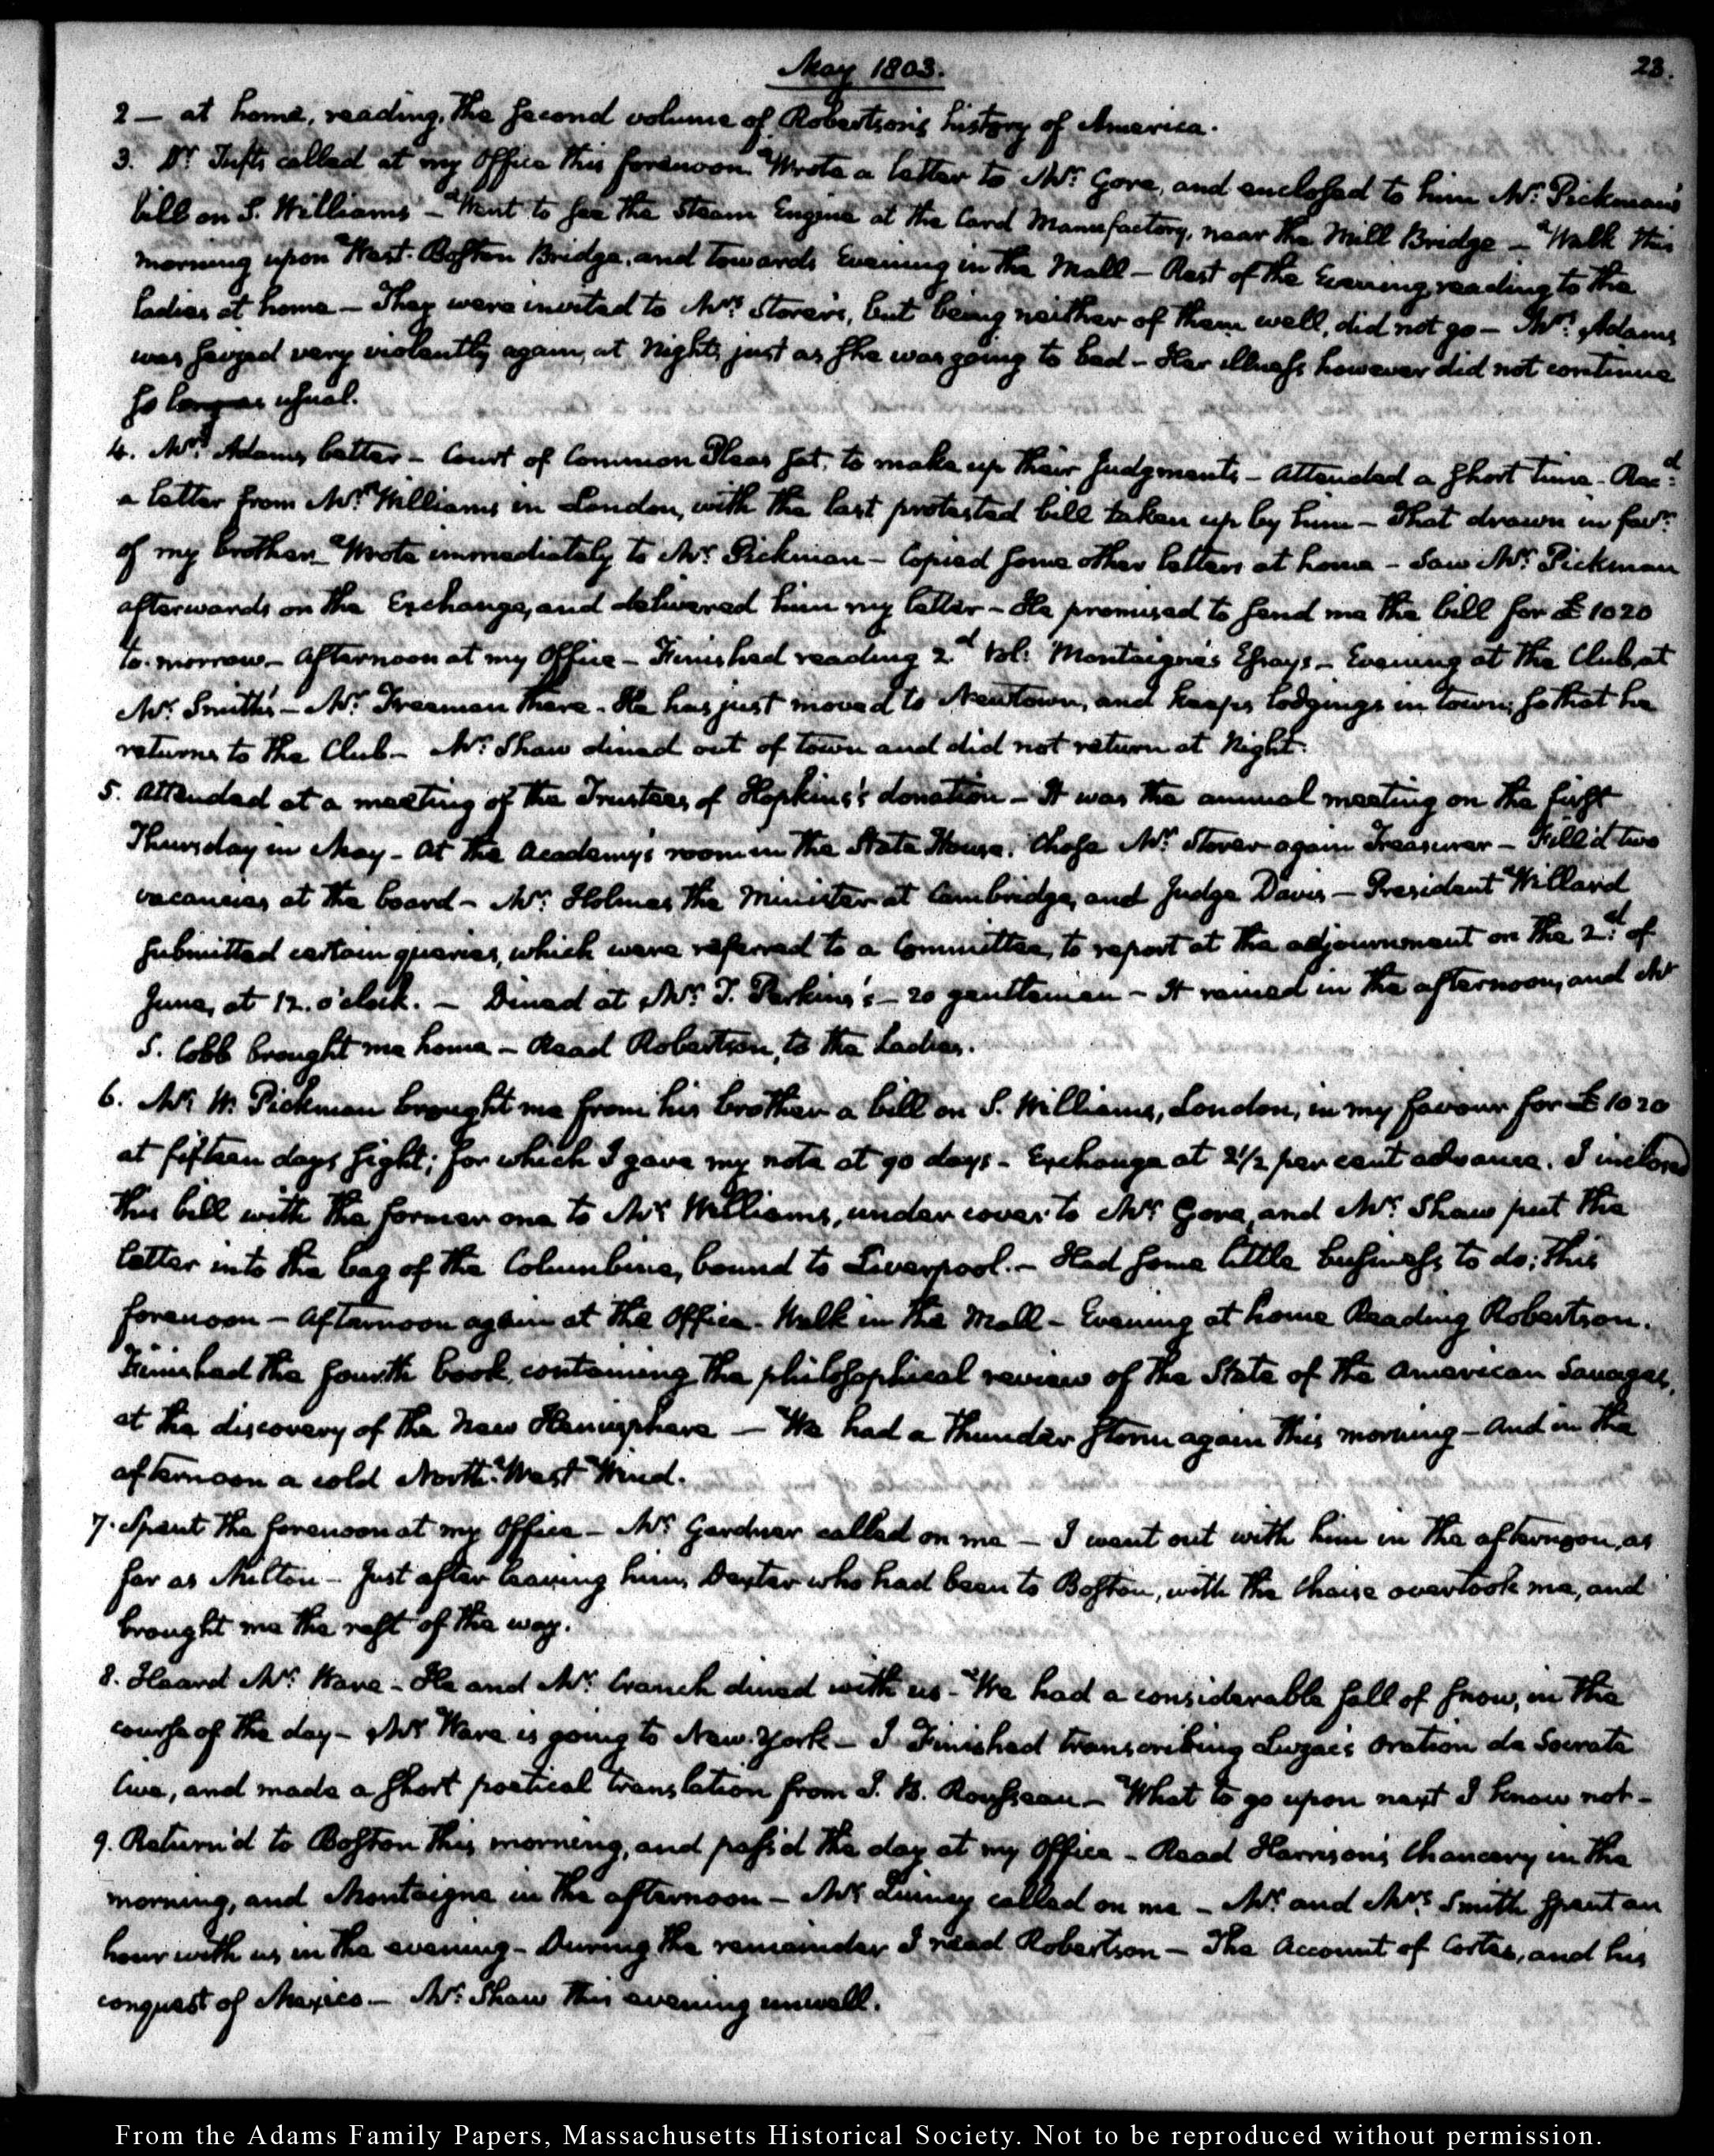 May 1803.
23.
2 — at home, reading, the second volume of Robertson's history of America.
3. Dr. Tufts called at my Office this forenoon. Wrote a letter to Mr. Gore, and enclosed to him Mr. Pickman's
bill on S. Williams — Went to see the Steam Engine at the Card Manufactory, near the Mill Bridge — Walk this
morning upon West-Boston Bridge, and towards Evening in the Mall — Rest of the Evening reading to the
ladies at home — They were invited to Mrs. Storer's, but being neither of them well, did not go — Mrs. Adams
was seized very violently again, at Night, just as she was going to bed — Her illness however did not continue
so long as usual.
4. Mrs. Adams better — Court of Common Pleas sat, to make up their Judgments — Attended a short time. Recd.
a letter from Mr. Williams in London, with the last protested bill taken up by him — That drawn in favr.
of my brother — Wrote immediately to Mr. Pickman — Copied some other letters at home — Saw Mr. Pickman
afterwards on the Exchange, and delivered him my letter — He promised to send me the bill for £1020
to-morrow — Afternoon at my Office — Finished reading 2d. Vol: Montaigne's Essays — Evening at the Club, at
Mr. Smith's — Mr. Freeman there. He has just moved to Newtown, and keeps lodgings in town; so that he
returns to the Club — Mr. Shaw dined out of town and did not return at Night.
5. Attended at a meeting of the Trustees of Hopkins's donation — It was the annual meeting on the first
Thursday in May — At the Academy's room in the State House. Chose Mr. Storer again Treasurer — Fill'd two
vacancies at the board — Mr. Holmes the Minister at Cambridge, and Judge Davis — President Willard
submitted certain queries, which were referred to a Committee, to report at the adjournment on the 2d. of
June, at 12. o'clock. — Dined at Mr. T. Perkins's — 20 gentlemen — It rained in the afternoon, and Mr
S. Cobb brought me home — Read Robertson, to the Ladies.
6. Mr. W. Pickman brought me from his brother a bill on S. Williams, London, in my favour for £1020
at fifteen days sight; for which I gave my note at 90 days — Exchange at 2 1/2 per cent advance. I inclosed
this bill with the former one to Mr. Williams, under cover to Mr. Gore, and Mr. Shaw put the
letter into the bag of the Columbine, bound to Liverpool. — Had some little business to do; this
forenoon — Afternoon again at the Office. Walk in the Mall — Evening at home Reading Robertson.
Finished the fourth book, containing the philosophical review of the State of the American Savages,
at the discovery of the New Hemisphere — We had a thunder storm again this morning — And in the
afternoon a cold North-West Wind.
7. Spent the forenoon at my Office — Mr. Gardner called on me — I went out with him in the afternoon, as
far as Milton — Just after leaving him, Dexter who had been to Boston, with the Chaise overtook me, and
brought me the rest of the way.
8. Heard Mr. Ware — He and Mr. Cranch dined with us — We had a considerable fall of snow, in the
course of the day — Mr. Ware is going to New-York — I Finished transcribing Luzac's Oration de Socrate
Cive, and made a short poetical translation from J. B. Rousseau — What to go upon next I know not —
9. Return'd to Boston this morning, and pass'd the day at my Office — Read Harrison's Chancery in the
morning, and Montaigne in the afternoon — Mr. called on me — Mr. and Mrs. Smith spent an
hour with us in the evening — During the remainder I read Robertson — The Account of Cortes, and his
conquest of Mexico — Mr. Shaw this evening unwell.
From the Adams Family Papers, Massachusetts Historical Society. Not to be reproduced without permission.